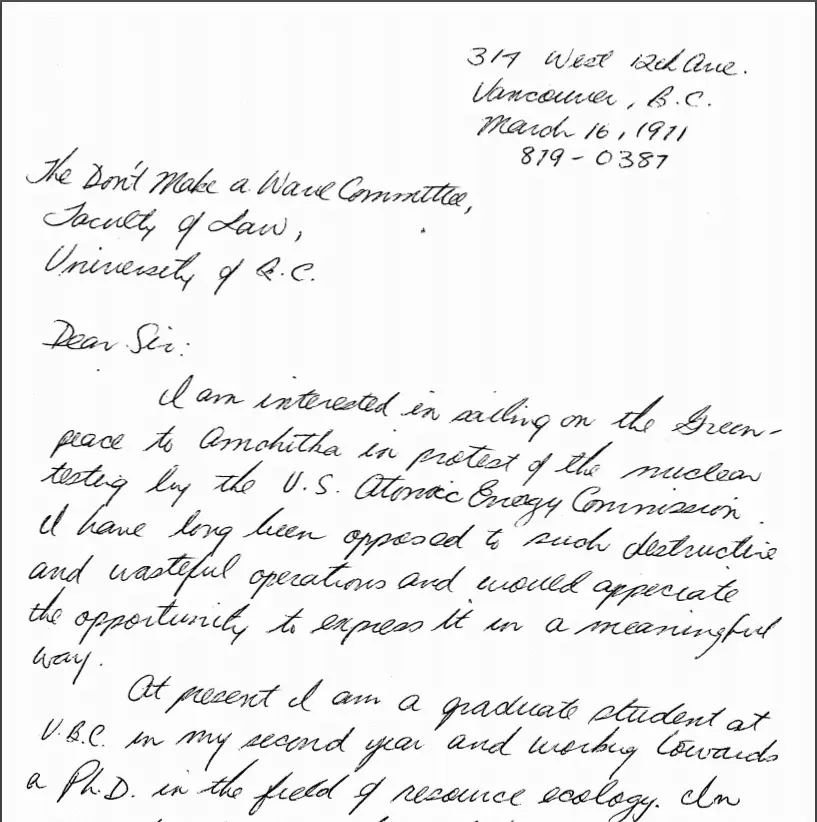 317 West 12th Ave.
Vancouver, B.C.
March 16, 1971
879-0387
The Don't Make a Wave Committee,
Faculty of Law,
University of B.C.
Dear Sir:
I am interested in sailing on the Green-
peace to Amchitka in protest of the nuclear
testing by the U.S. Atomic Energy Commission.
I have long been opposed to such destructive
and wasteful operations and would appeciate
the opportunity to express it in a meaningful
way.
At present I am a graduate student at
U.B.C. in my second year and working towards
a Ph.D. in the field of resource ecology. In